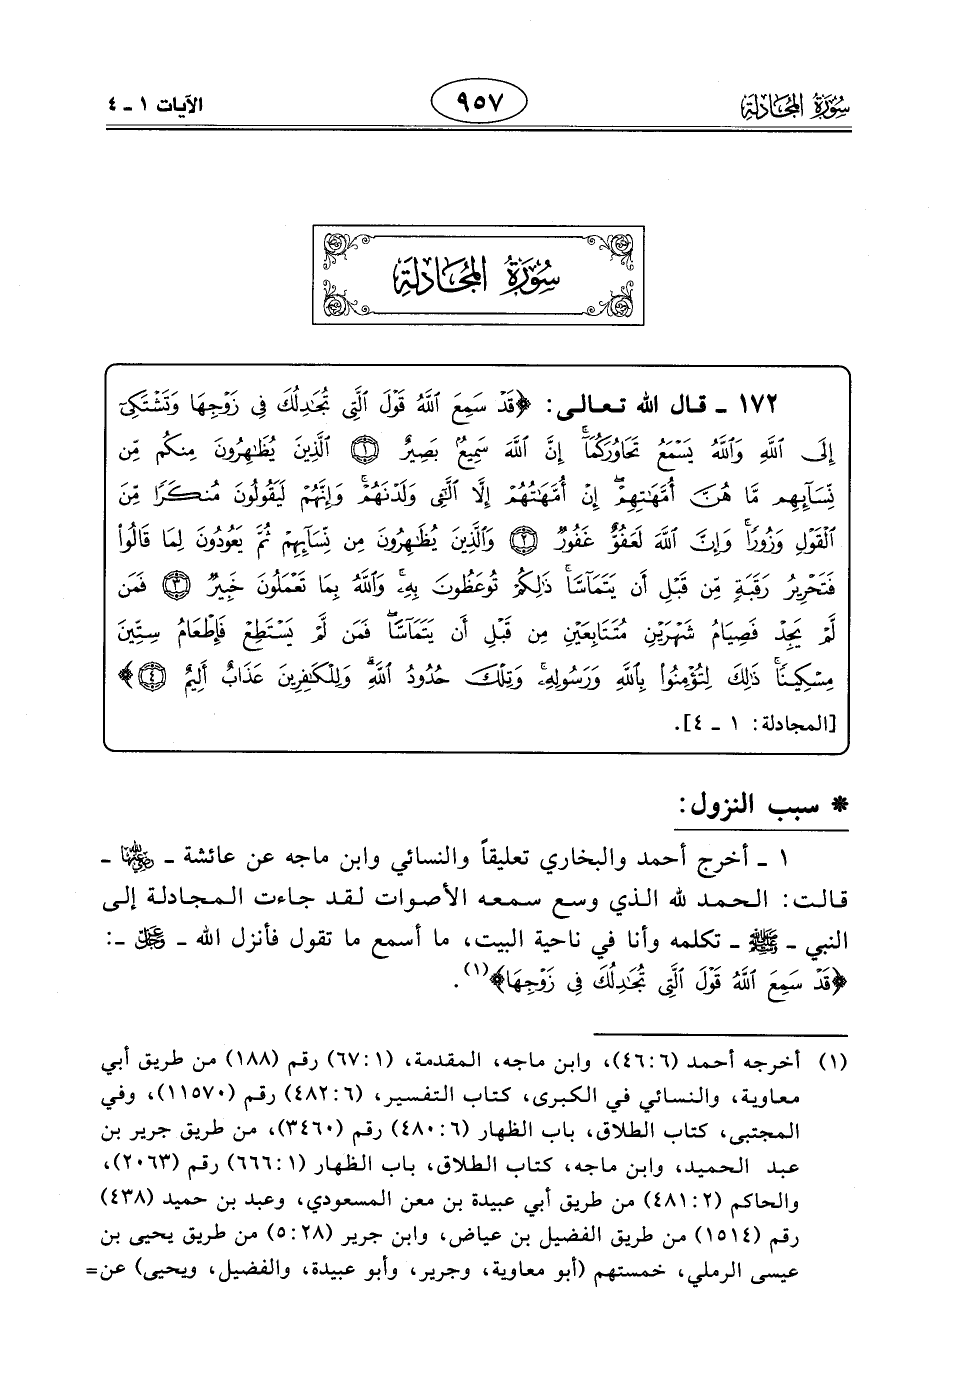 سُورَةُ المُجَادلَة
٩٥٧
الآيات ١ ـ ٤
سُورَةُ المُجَادلَةِ
١٧٢ ـ قال الله تعالى: ﴿قَدْ سَمِعَ ٱللَّهُ قَوْلَ ٱلَّتِى تُجَٰدِلُكَ فِى زَوْجِهَا وَتَشْتَكِىٓ
إِلَى ٱللَّهِ وَٱللَّهُ يَسْمَعُ تَحَاوُرَكُمَآ ۚ إِنَّ ٱللَّهَ سَمِيعٌۢ بَصِيرٌ ١ ٱلَّذِينَ يُظَٰهِرُونَ مِنكُم مِّن
نِّسَآئِهِم مَّا هُنَّ أُمَّهَٰتِهِمْ ۖ إِنْ أُمَّهَٰتُهُمْ إِلَّا ٱلَّٰٓـِٔى وَلَدْنَهُمْ ۚ وَإِنَّهُمْ لَيَقُولُونَ مُنكَرًا مِّنَ
ٱلْقَوْلِ وَزُورًا ۚ وَإِنَّ ٱللَّهَ لَعَفُوٌّ غَفُورٌ ٢ وَٱلَّذِينَ يُظَٰهِرُونَ مِن نِّسَآئِهِمْ ثُمَّ يَعُودُونَ لِمَا قَالُوا۟
فَتَحْرِيرُ رَقَبَةٍ مِّن قَبْلِ أَن يَتَمَآسَّا ۚ ذَٰلِكُمْ تُوعَظُونَ بِهِۦ ۚ وَٱللَّهُ بِمَا تَعْمَلُونَ خَبِيرٌ ٣ فَمَن
لَّمْ يَجِدْ فَصِيَامُ شَهْرَيْنِ مُتَتَابِعَيْنِ مِن قَبْلِ أَن يَتَمَآسَّا ۖ فَمَن لَّمْ يَسْتَطِعْ فَإِطْعَامُ سِتِّينَ
مِسْكِينًا ۚ ذَٰلِكَ لِتُؤْمِنُوا۟ بِٱللَّهِ وَرَسُولِهِۦ ۚ وَتِلْكَ حُدُودُ ٱللَّهِ ۗ وَلِلْكَٰفِرِينَ عَذَابٌ أَلِيمٌ ٤﴾
[المجادلة: ١ ـ ٤].
* سبب النزول:
١ ـ أخرج أحمد والبخاري تعليقاً والنسائي وابن ماجه عن عائشة ـ رضي الله عنها ـ
قالت: الحمد لله الذي وسع سمعه الأصوات لقد جاءت المجادلة إلى
النبي ـ ﷺ ـ تكلمه وأنا في ناحية البيت، ما أسمع ما تقول فأنزل الله ـ عز وجل ـ:
﴿قَدْ سَمِعَ ٱللَّهُ قَوْلَ ٱلَّتِى تُجَٰدِلُكَ فِى زَوْجِهَا﴾(١).
(١) أخرجه أحمد (٦:٤٦)، وابن ماجه، المقدمة، (١:٦٧) رقم (١٨٨) من طريق أبي
معاوية، والنسائي في الكبرى، كتاب التفسير، (٦:٤٨٢) رقم (١١٥٧٠)، وفي
المجتبى، كتاب الطلاق، باب الظهار (٦:٤٨٠) رقم (٣٤٦٠)، من طريق جرير بن
عبد الحميد، وابن ماجه، كتاب الطلاق، باب الظهار (١:٦٦٦) رقم (٢٠٦٣)،
والحاكم (٢:٤٨١) من طريق أبي عبيدة بن معن المسعودي، وعبد بن حميد (٤٣٨)
رقم (١٥١٤) من طريق الفضيل بن عياض، وابن جرير (٢٨:٥) من طريق يحيى بن
عيسى الرملي، خمستهم (أبو معاوية، وجرير، وأبو عبيدة، والفضيل، ويحيى) عن=